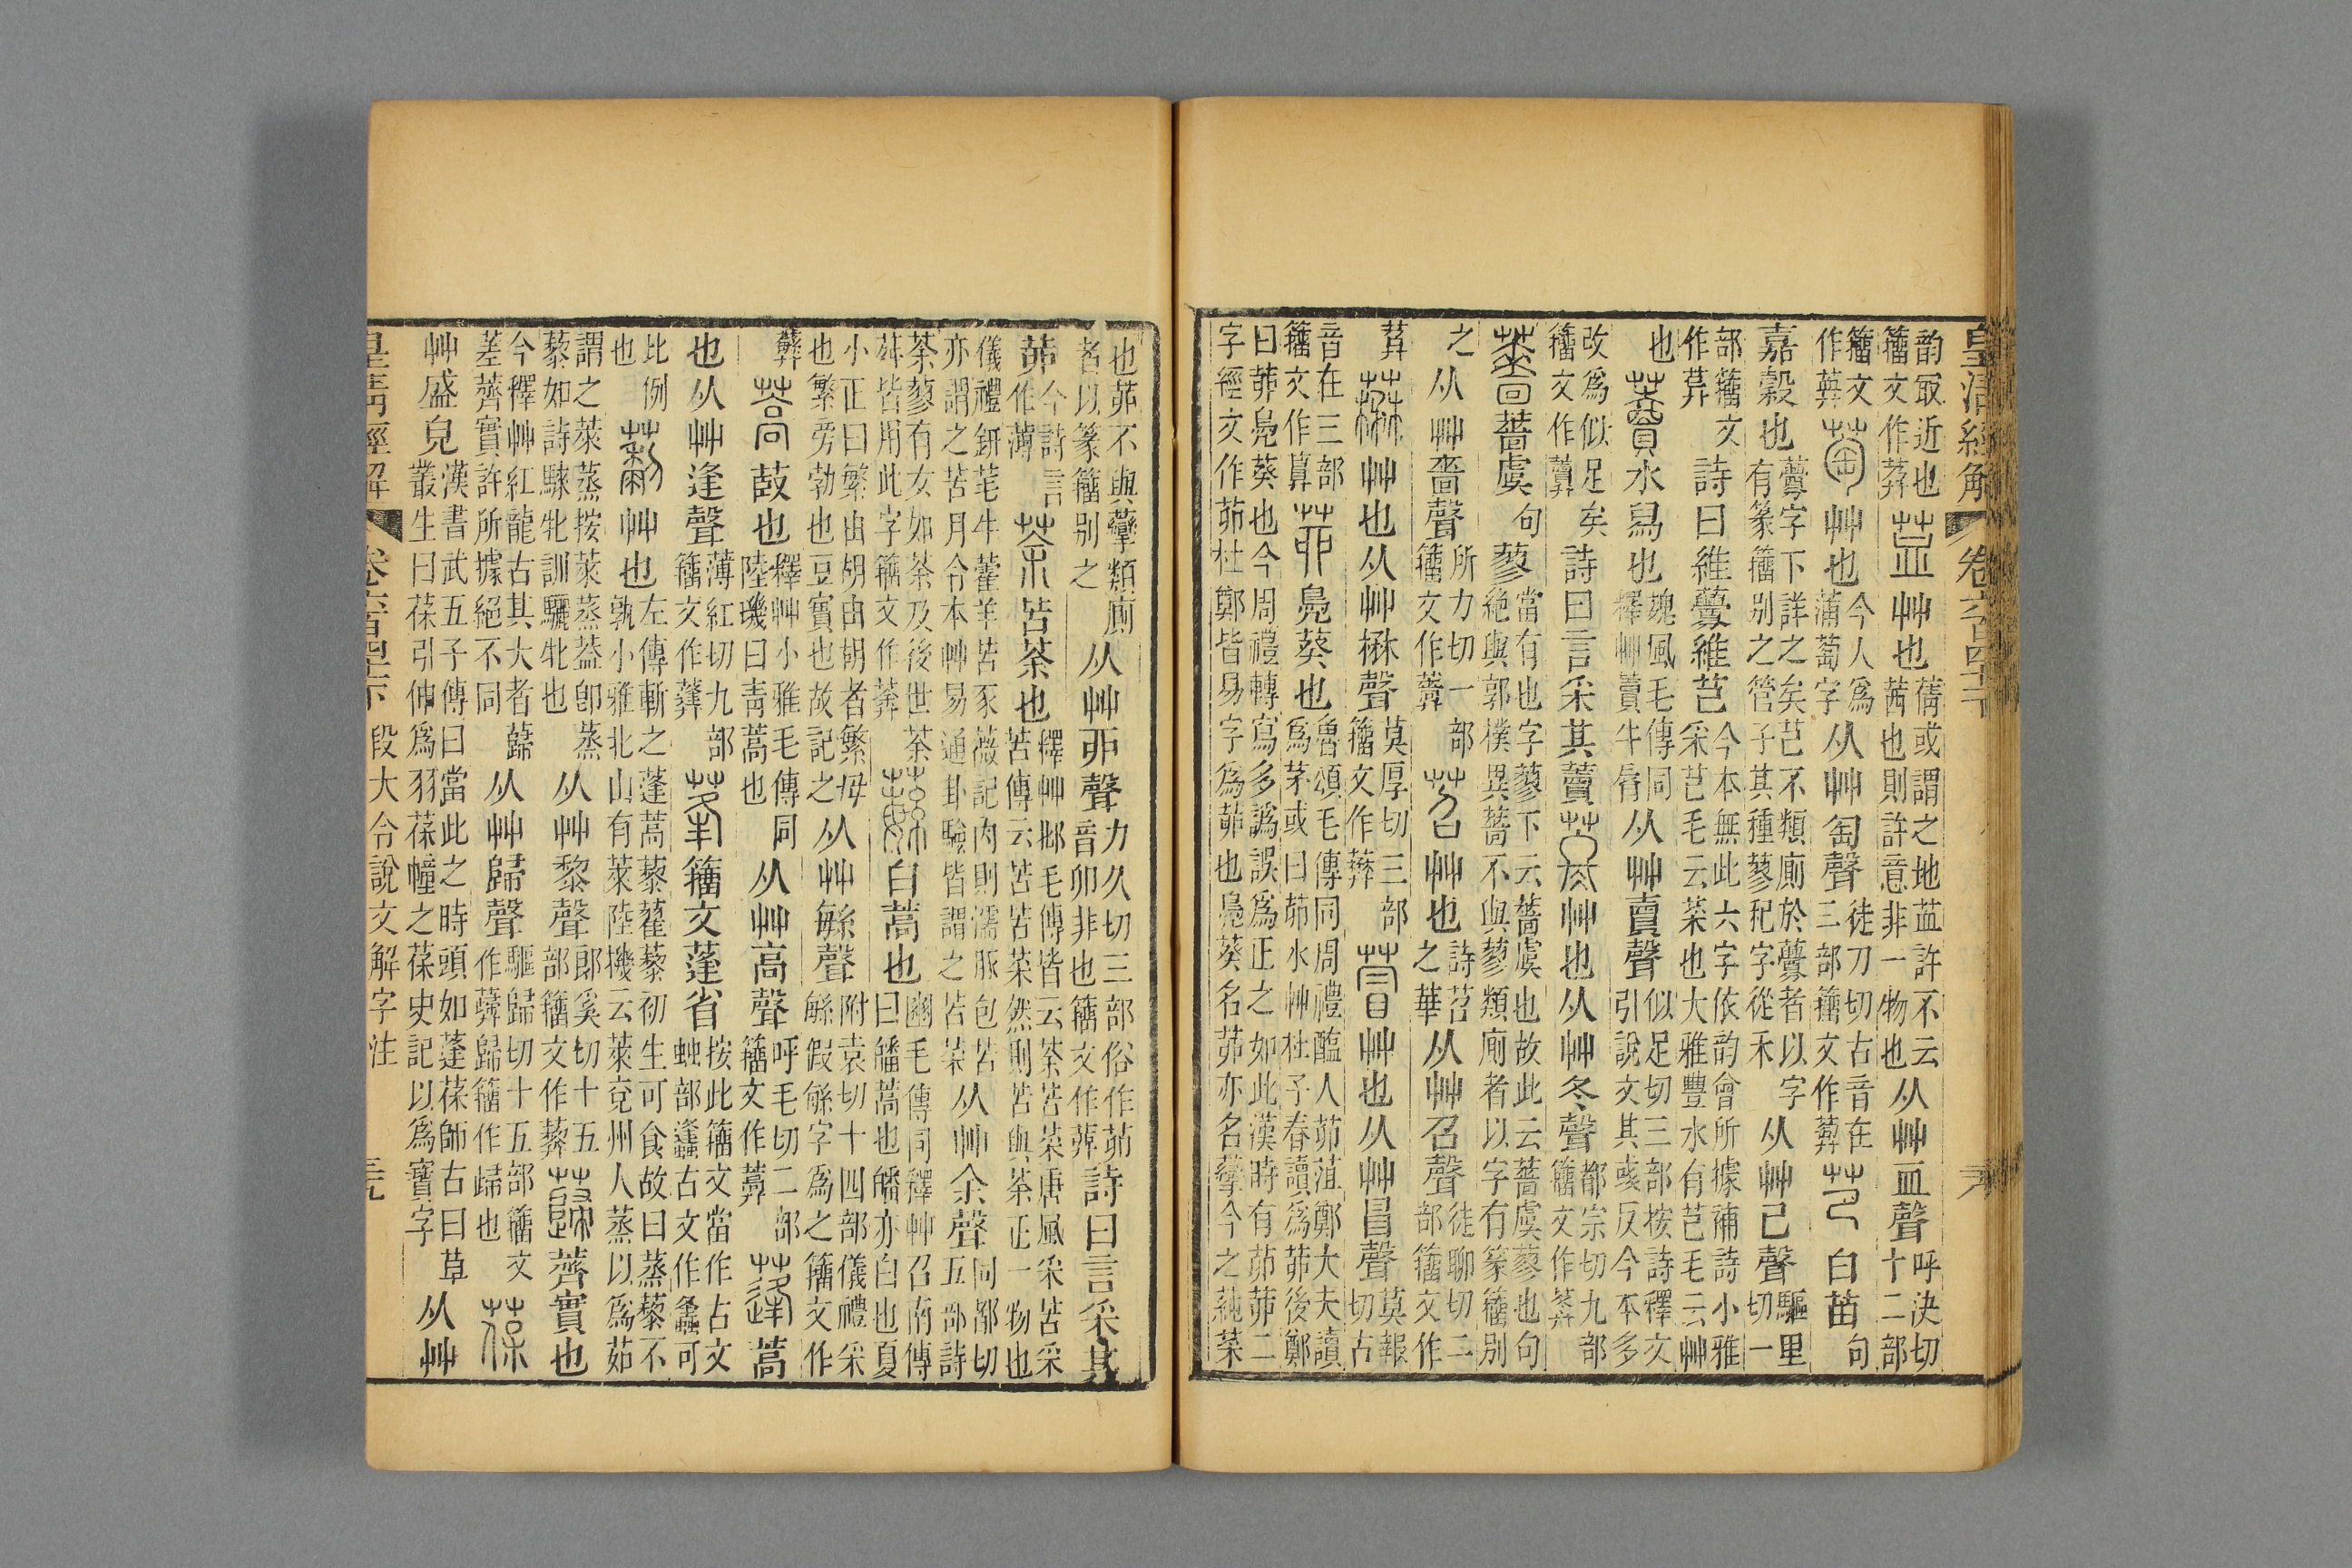 皇清經解 卷六百四十一下
韵㝡近也籒文作䓝艸也蒨或謂之地䓝許不云茜也則許意非一物也从艸血聲呼決切十二部
籒文作萄艸也今人爲蒲萄字从艸匋聲徒刀切古音在三部籒文作芑白苗句
嘉穀也虋字下詳之矣芑不類廁於虋者以字有篆籒别之管子其種蓼秬字從禾从艸己聲驅里切一
部籒文作詩曰維虋維芑今本無此六字依韵會所據補詩小雅采芑毛云菜也大雅豐水有芑毛云艸
也藚水舄也魏風毛傳同釋艸藚牛脣从艸賣聲似足切三部按詩釋文引說文其彧反今本多
改爲似足矣籒文作詩曰言采其藚苳艸也从艸冬聲都宗切九部籒文作
薔薔虞句蓼當有也字蓼下云薔虞也故此云薔虞蓼也句絶與郭樸異薔不與蓼類廁者以字有篆籒別
之从艸嗇聲所力切一部籒文作苕艸也詩苕之華从艸召聲徒聊切二部籒文作
艸也从艸楙聲莫厚切三部籒文作艸也从艸冒聲莫報切古
音在三部籒文作茆鳧葵也魯頌毛傳同周禮醢人茆菹鄭大夫讀爲茅或曰茆水艸杜子春讀爲茆後鄭
曰茆鳧葵也今周禮轉寫多譌誤爲正之如此漢時有茆茆二字經文作茆杜鄭皆易字爲茆也鳧葵名茆亦名䕯今之蒓菜
也茆不與䕯類廁者以篆籒别之从艸丣聲力久切三部俗作茆音卯非也籒文作詩曰言采其
茆今詩言作薄荼苦荼也釋艸邶毛傳皆云荼苦菜唐風采苦采苦傳云苦苦菜然則苦與荼正一物也
儀禮鈃芼牛藿羊苦豕薇記内則濡豚包苦亦謂之苦月令本艸易通卦驗皆謂之苦菜从艸余聲同都切五部詩
荼蓼有女如荼及後世荼茻皆用此字籒文作白蒿也豳毛傳同釋艸召南傳曰皤蒿也皤亦白也夏
小正曰繁由胡由胡者繁母也繁旁勃也豆實也故記之从艸緐聲附袁切十四部儀禮采緐假緐字爲之籒文作
蒿菣也釋艸小雅毛傳同陸璣曰青蒿也从艸高聲呼毛切二部籒文作蓬蒿
也从艸逢聲薄紅切九部籒文作籒文蓬省按此籒文當作古文䖵部古文作螽可
比例也藜艸也左傳斬之蓬蒿藜藋藜初生可食故曰蒸藜不孰小雅北山有萊陸機云萊兗州人蒸以爲茹
謂之萊蒸按萊蒸葢卽蒸藜如詩騋牝訓驪牝也从艸黎聲郎奚切十五部籒文作蘬薺實也
今釋艸紅龍古其大者蘬差薺實許所據絕不同从艸歸聲驅歸切十五部籒文作歸籒作㱕也葆
艸盛皃漢書武五子傳曰當此之時頭如蓬葆師古曰草叢生曰葆引伸爲羽葆幢之葆史記以爲寶字从艸
皇清經解 卷六百四十一下 段大令說文解字注